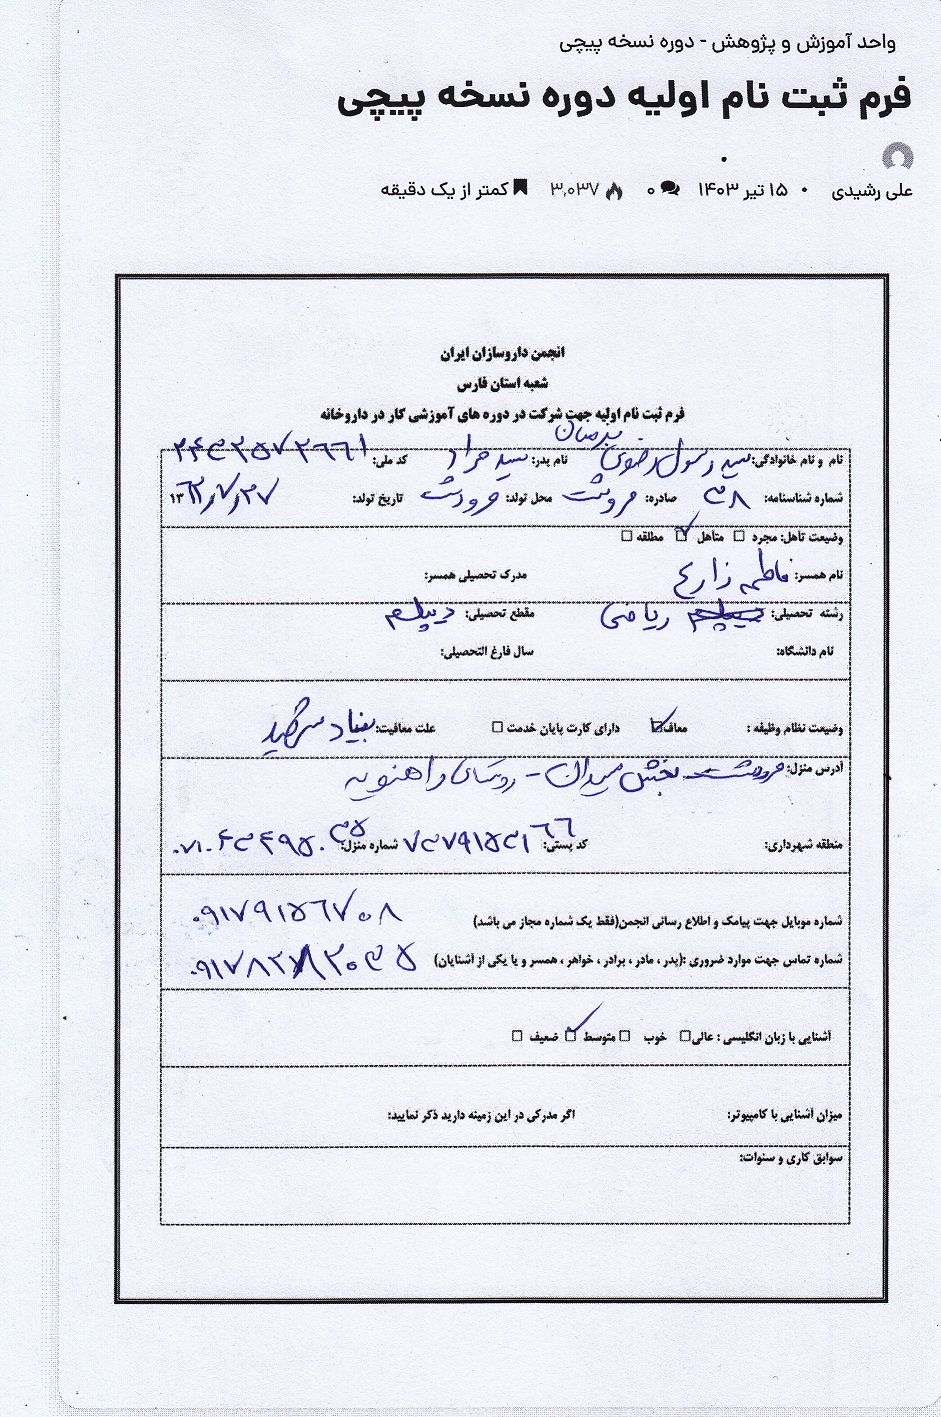 واحد آموزش و پژوهش - دوره نسخه پیچی
فرم ثبت نام اولیه دوره نسخه پیچی
علی رشیدی • ۱۵ تیر ۱۴۰۳ ۰ ۳,۰۳۷ کمتر از یک دقیقه
انجمن داروسازان ایران
شعبه استان فارس
فرم ثبت نام اولیه جهت شرکت در دوره های آموزشی کار در داروخانه
نام و نام خانوادگی: سید رسول رضوی نام پدر: سید مراد کد ملی:
شماره شناسنامه: ۳۸ صادره: مرودشت محل تولد: مرودشت تاریخ تولد: ۱۳۶۲/۷/۲۷
وضعیت تأهل: مجرد ☐ متأهل ☑ مطلقه ☐
نام همسر: فاطمه زارع مدرک تحصیلی همسر:
رشته تحصیلی: ریاضی مقطع تحصیلی: دیپلم
نام دانشگاه: سال فارغ التحصیلی:
وضعیت نظام وظیفه : معاف ☑ دارای کارت پایان خدمت ☐ علت معافیت: بنیاد
آدرس منزل: مرودشت - بخش - روستای
منطقه شهرداری: کد پستی: ۷۳۷۹۱۵۳۱۶۶ شماره منزل: ۰۷۱۰۴۳۴۹۵۰۳۵
شماره موبایل جهت پیامک و اطلاع رسانی انجمن(فقط یک شماره مجاز می باشد) ۰۹۱۷۹۱۵۶۷۰۸
شماره تماس جهت موارد ضروری :(پدر ، مادر ، برادر ، خواهر ، همسر و یا یکی از آشنایان)
آشنایی با زبان انگلیسی : عالی ☐ خوب ☐ متوسط ☑ ضعیف ☐
میزان آشنایی با کامپیوتر: اگر مدرکی در این زمینه دارید ذکر نمایید:
سوابق کاری و سنوات: